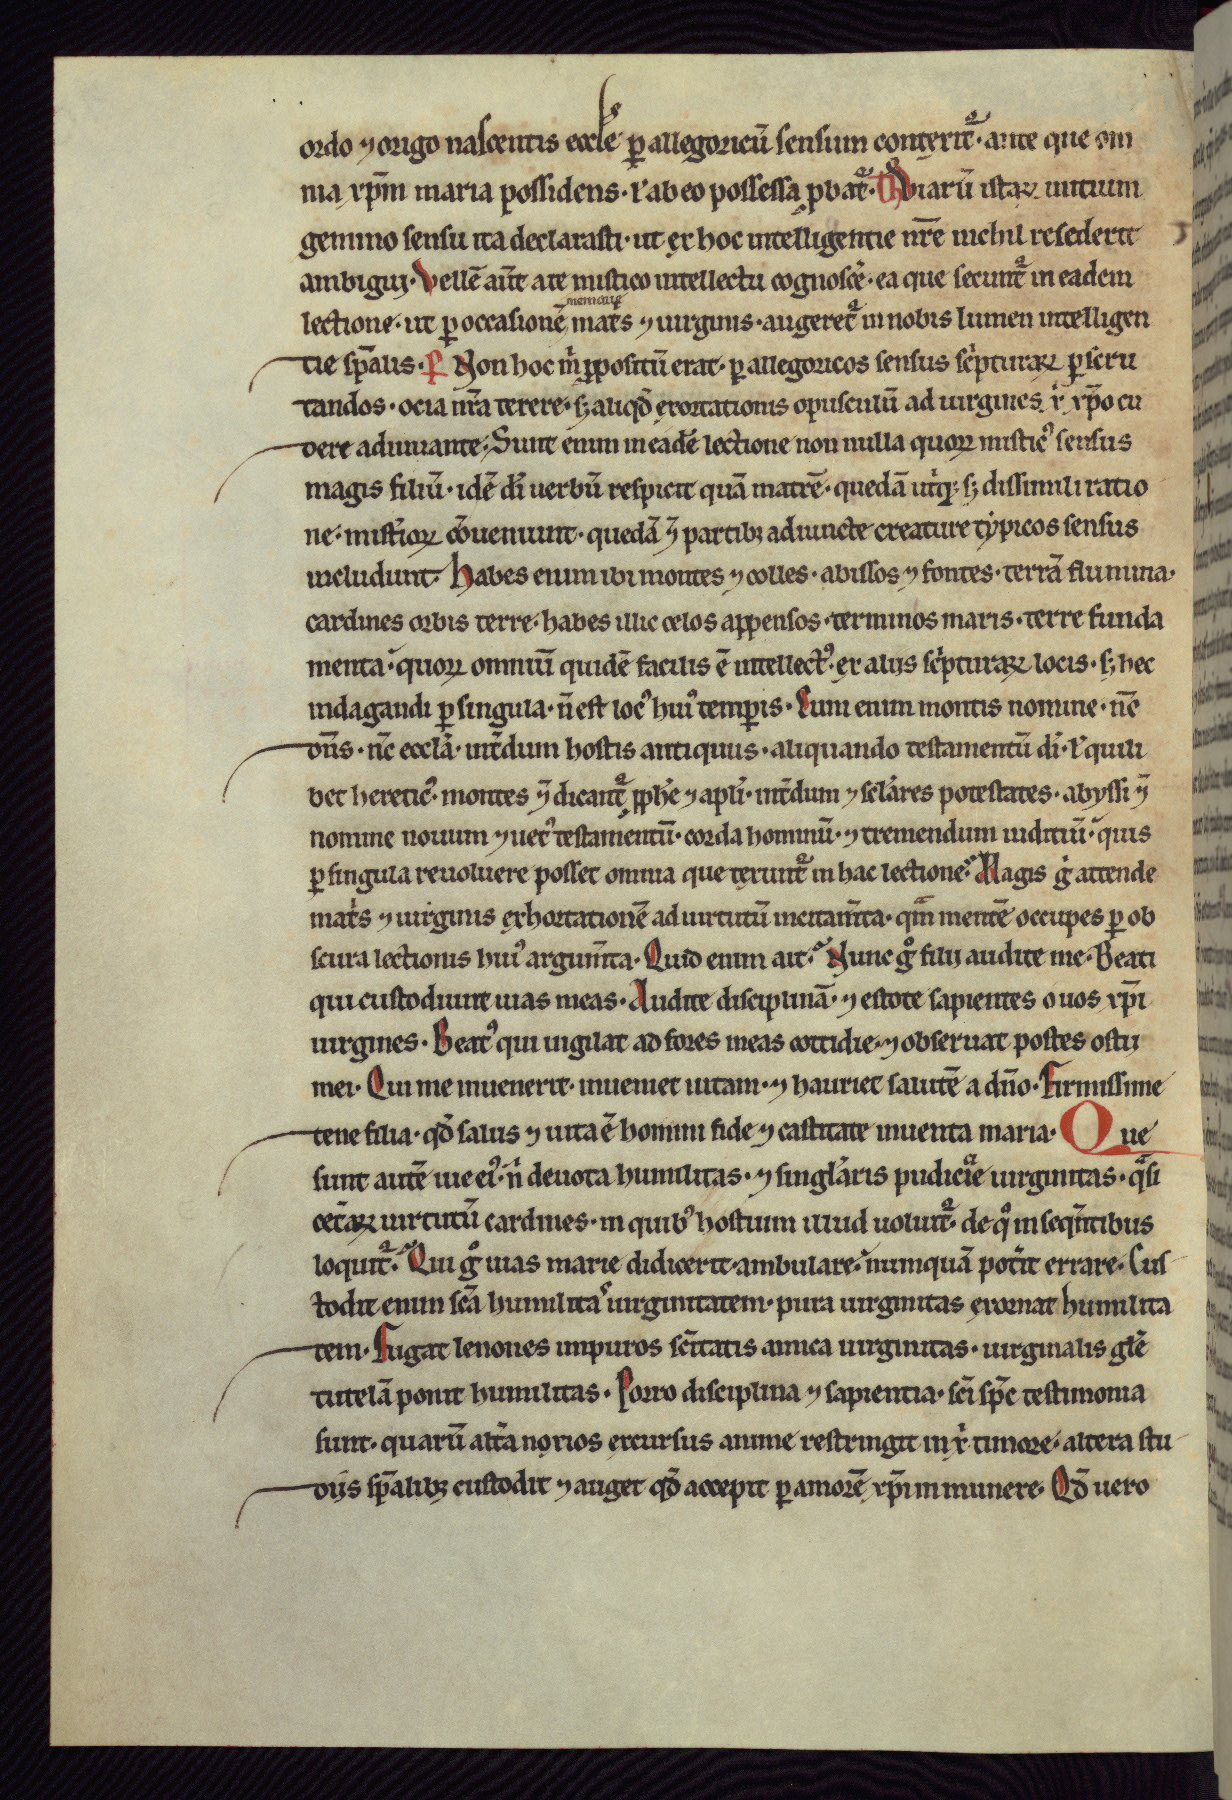 ordo ⁊ origo nascentis eccl̄e ꝑ allegoricū sensum conterit᷑ · ante que om
nia xp̄m maria possidens · ⁊ ab eo possessa ꝓbat᷑ · T Viarū istaꝝ initium
gemino sensu ita declarasti · ut ex hoc intelligentie nr̄e nichil resederit
ambigui · Vellē aūt a te mistico intellectu cognoscē · ea que secunt᷑ in eadem
lectione · ut ꝑ occasionē memorie mat̄s ⁊ uirginis · augeret᷑ in nobis lumen intelligen
tie sp̄alis · P Non hoc m̍ ꝓpositū erat · ꝑ allegoricos sensus sc̍pturaꝝ ꝑscru
tandos · ocia nr̄a terere · sꝫ aliqd̄ exortationis opusculū ad uirgines xp̍ xp̄o cu
dere adiuuante · Sunt enim in eadē lectione non nulla quoꝝ mistic᷒ sensus
magis filiū · idē di̍ uerbū respicit quā matrē · quedā ut̍qꝫ sꝫ dissimili ratio
ne · mist̍ioꝝ c̄ōueniunt · quedā ū partibꝫ adiuncte creature tẏpicos sensus
includunt · Habes enim ibi montes ⁊ colles · abissos ⁊ fontes · terrā flumina ·
cardines orbis terre · habes illic celos appensos · terminos maris · terre funda
menta · quoꝝ omniū quidē facilis ē intellect᷒ · ex aliis sc̍pturaꝝ locis · sꝫ hec
indagandi ꝑ singula · n̄ est loc᷒ hui᷒ temꝑis · Cum enim montis nomine · nc̄
dn̄s · nc̄ eccl̄a · int̄dum hostis antiquus · aliquando testamentū di̍ · ł quili
bet heretic᷒ · montes ū dicant᷑ ꝓph̄e ⁊ apl̍i · int̄dum ⁊ sclares potestates · abyssi ū
nomine nouum ⁊ uet᷒ testamentū · corda hominū · ⁊ tremendum iuditiū · quis
ꝑ singula reuoluere posset omnia que ferunt᷑ in hac lectione · Magis g̍ attende
mat̄s ⁊ uirginis exhortationē ad uirtutū incitam̄ta · qm̄ mentē occupes ꝑ ob
scura lectionis hui᷒ argum̄ta · Quid enim ait · Nunc gͦ filii audite me · Beati
qui custodiunt uias meas · Audite disciplinā · ⁊ estote sapientes o uos xp̄i
uirgines · Beat᷒ qui uigilat ad fores meas cottidie · ⁊ obseruat postes ostii
mei · Qui me inuenerit · inueniet uitam · ⁊ hauriet salutē a dn̄o · Firmissime
tene filia · qd̄ salus ⁊ uita ē homini fide ⁊ castitate inuenta maria · Que
sunt autē uie ei᷒ · n̍ deuota humilitas · ⁊ singl̄aris pudicic̄ie uirginitas · qᷓsi
cet̄aꝝ uirtutū cardines · in quib᷒ hostium illud uoluit᷑ · de qͦ in seqn̄tibus
loquit᷑ · Qui gͦ uias marie didicerit · ambulare · numquā pot̍it errare · Cus
todit enim scā humilita᷒ uirginitatem · pura uirginitas exornat humilita
tem · Fugat lenones impuros sc̄itatis amica uirginitas · uirginalis gl̄e
tutelā ponit humilitas · Porro disciplina ⁊ sapientia · sc̄i sp̄c testimonia
sunt · quarū alt̄a noxios excursus anime restringit in xp̍ timore · altera stu
diis sp̄alibꝫ custodit ⁊ auget qd̄ accepit ꝑ amorē xp̄i in munere · Qd̄ uero